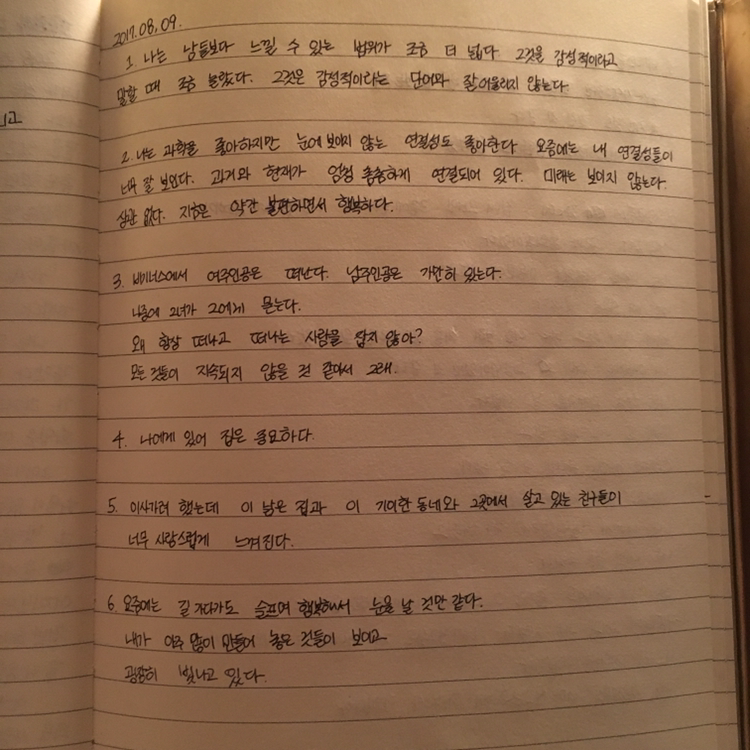 2017.08.09.
1. 나는 남들보다 느낄 수 있는 범위가 조금 더 넓다 그것을 감성적이라고
말할 때 조금 놀랐다. 그것은 감성적이라는 단어와 잘 어울리지 않는다.
2. 나는 과학을 좋아하지만 눈에 보이지 않는 연결성도 좋아한다 요즘에는 내 연결성들이
너무 잘 보인다. 과거와 현재가 엄청 촘촘하게 연결되어 있다. 미래는 보이지 않는다.
상관 없다. 지금은 약간 불편하면서 행복하다.
3. 비기너스에서 여주인공은 떠난다. 남주인공은 가만히 있는다.
나중에 그녀가 그에게 묻는다.
왜 항상 떠나고 떠나는 사람을 잡지 않아?
모든 것들이 지속되지 않을 것 같아서 그래.
4. 나에게 있어 집은 중요하다.
5. 이사가려 했는데 이 낡은 집과 이 기이한 동네와 그곳에서 살고 있는 친구들이
너무 사랑스럽게 느껴진다.
6. 요즘에는 길 가다가도 슬프며 행복해서 눈물 날 것만 같다.
내가 아주 많이 만들어 놓은 것들이 보이고
굉장히 빛나고 있다.